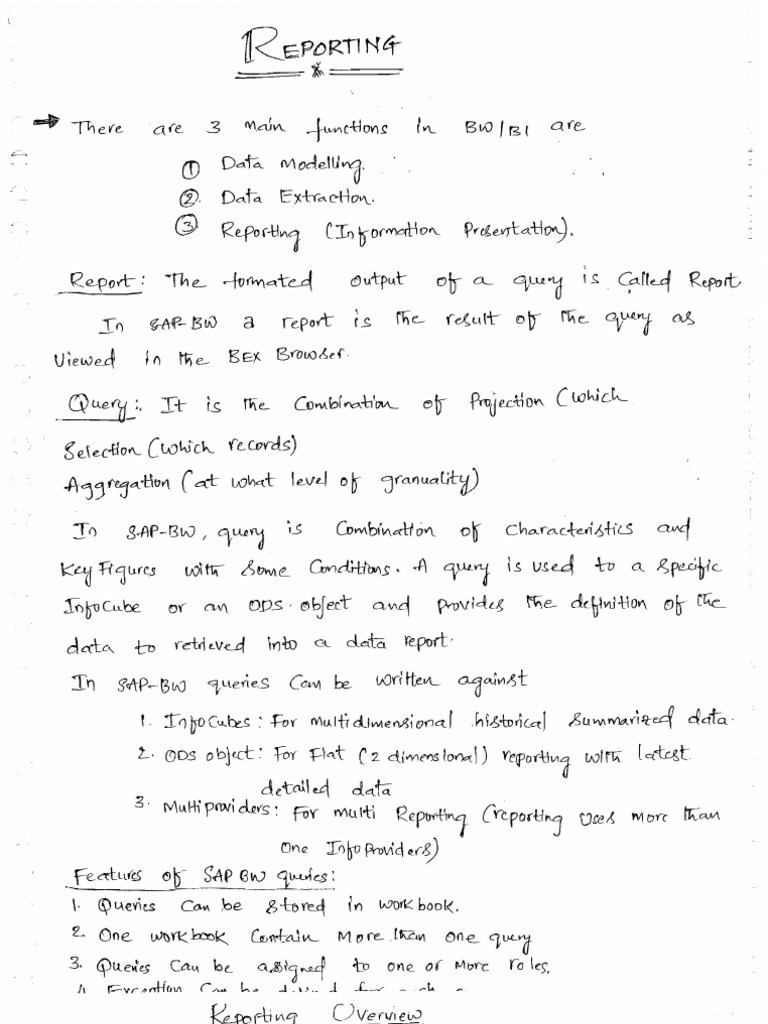 REPORTING
There are 3 main functions in BW/BI are
① Data Modelling.
② Data Extraction.
③ Reporting (Information Presentation).
Report: The formated output of a query is Called Report
In SAP-BW a report is the result of the query as
Viewed in the BEX Browser.
Query: It is the Combination of Projection (which
Selection (which records)
Aggregation (at what level of granuality)
In SAP-BW, query is Combination of Characteristics and
Key Figures with Some Conditions. A query is used to a Specific
InfoCube or an ODS object and provides the definition of the
data to retrieved into a data report.
In SAP-BW queries Can be written against
1. InfoCubes: For multidimensional historical Summarized data.
2. ODS object: For Flat (2 dimensional) reporting with latest
detailed data
3. Multiproviders: For multi Reporting (reporting Uses more than
One InfoProviders)
Features of SAP BW queries:
1. Queries Can be Stored in workbook.
2. One workbook Contain More then one query
3. Queries Can be assigned to one or More roles,
4. Exception Can be
Reporting Overview